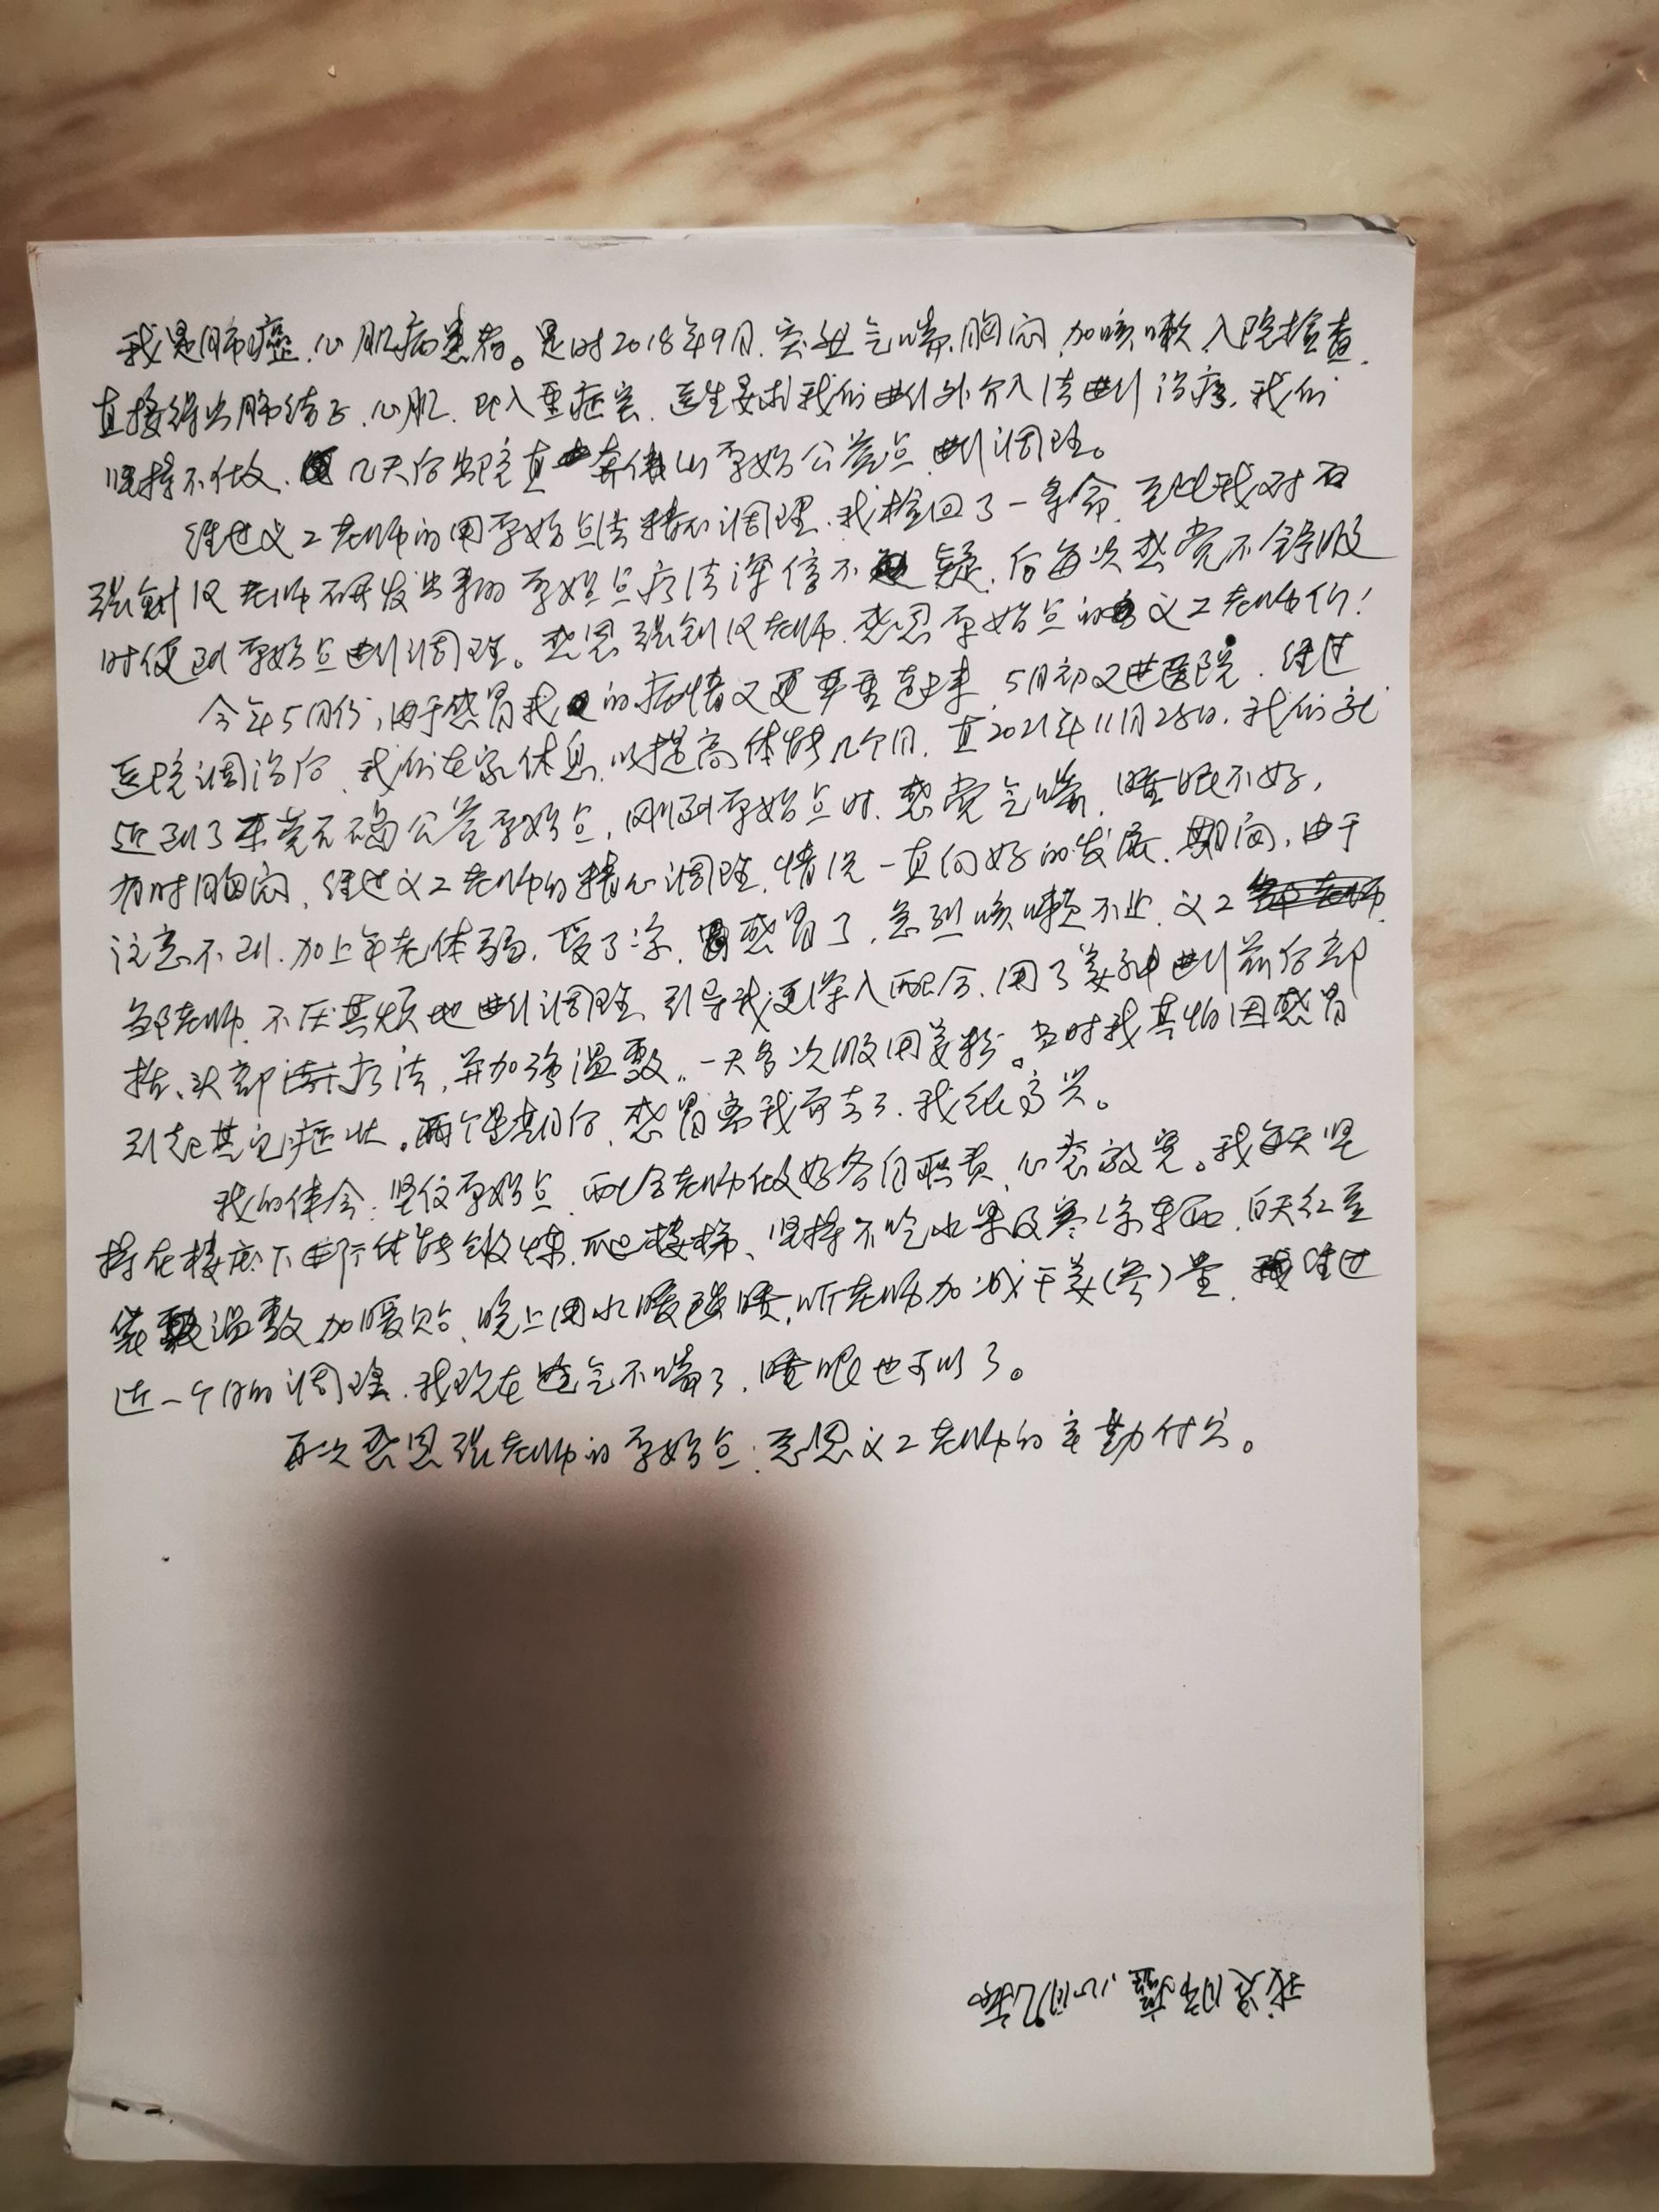 我是肺癌、心肌病患者。是时2018年9月,突起气喘、胸闷,加咳嗽,入院检查,
直接得出肺结子、心肌,即入重症室,医生要求我们进行外介入法进行治疗,我们
坚持不做,几天后出院直奔佛山原始公益点,进行调理。
经过义工老师的用原始点法精心调理,我检回了一条命,至此我对
张钊汉老师研发出来的原始点疗法深信不疑,后每次感觉不舒服
时便到原始点进行调理。感恩张钊汉老师,感恩原始点的义工老师们!
今年5月份,由于感冒我的病情又更严重起来,5月初又进医院,经过
医院调治后,我们在家休息,以提高体质几个月,直2021年11月28日,我们就
近到了东莞石碣公益原始点,刚到原始点时,感觉气喘,睡眠不好,
有时胸闷,经过义工老师的精心调理,情况一直向好的发展,期间,由于
注意不到,加上年老体弱,受了凉,感冒了,急烈咳嗽不止,义工
邹老师不厌其烦地进行调理,引导我更深入配合,用了姜粉进行前后部
按、头部疗法,并加强温敷,一天多次服用姜粉。当时我其怕因感冒
引起其它症状。两个星期后,感冒离我而去了,我很高兴。
我的体会:坚信原始点,配合老师做好各自职责,心态放宽。我每天坚
持在楼底下进行体质锻炼,爬楼梯、坚持不吃水果及寒凉东西,白天红豆
袋温敷加暖贴,晚上用水暖毯睡,听老师加减干姜(参)量,经过
近一个月的调理,我现在气不喘了,睡眠也可以了。
再次感恩张老师的原始点,感恩义工老师的辛勤付出。
我是肺癌、心肌病